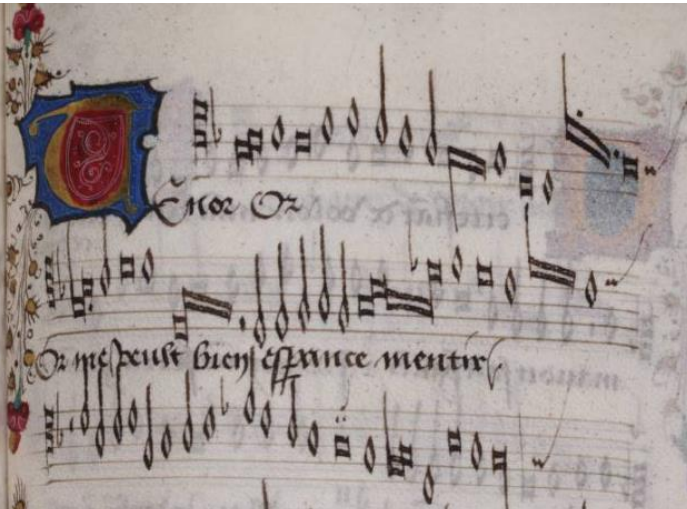 TEnor Or
Or me peult bien eſꝑance mentir